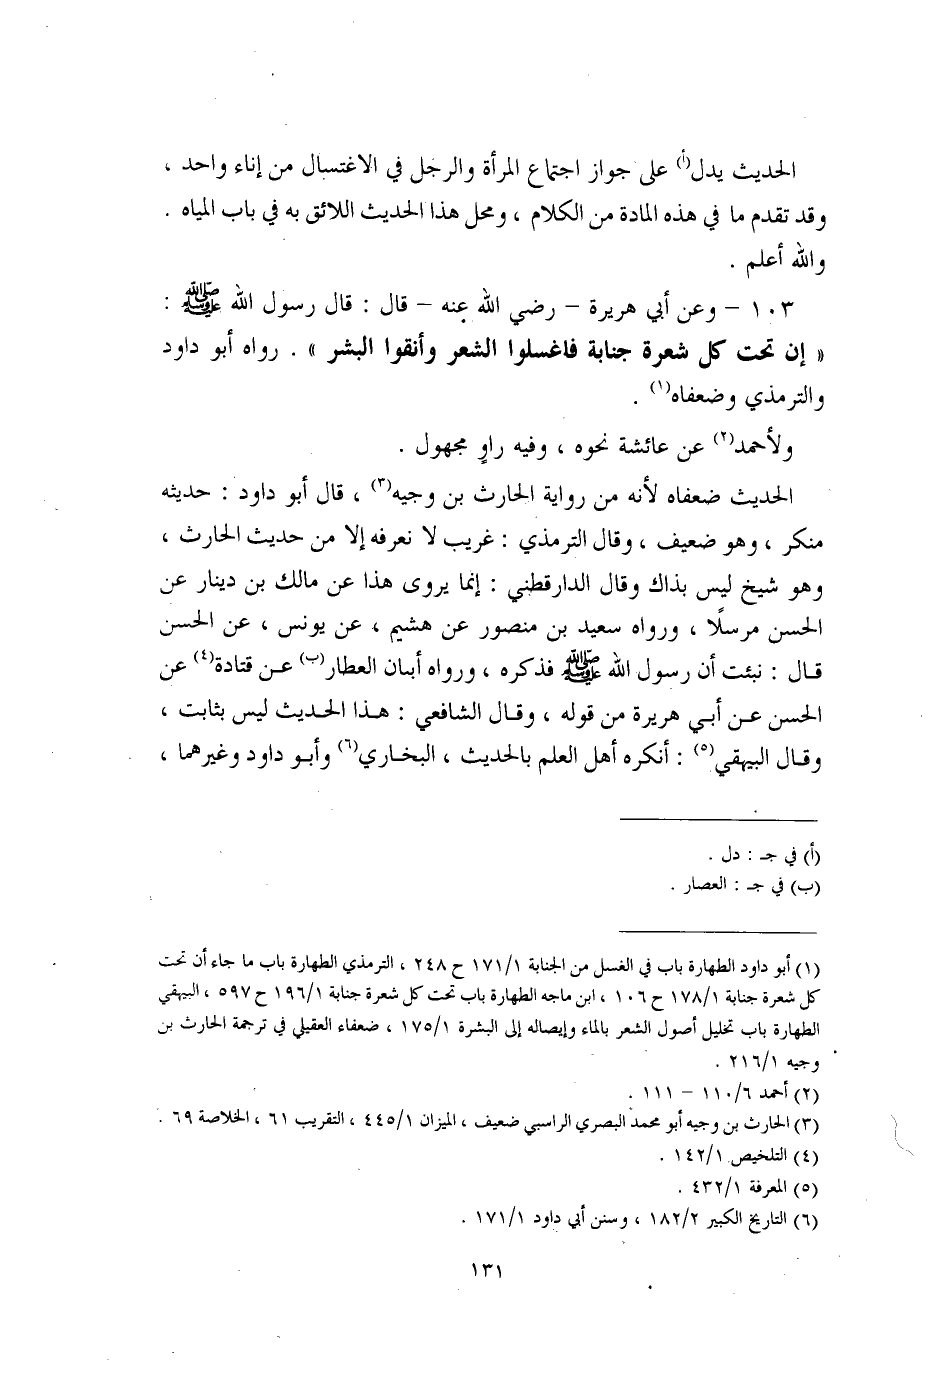 الحديث يدل(أ) على جواز اجتماع المرأة والرجل في الاغتسال من إناء واحد ،
وقد تقدم ما في هذه المادة من الكلام ، ومحل هذا الحديث اللائق به في باب المياه .
والله أعلم .
١٠٣ – وعن أبي هريرة – رضي الله عنه – قال : قال رسول الله ﷺ :
« إن تحت كل شعرة جنابة فاغسلوا الشعر وأنقوا البشر » . رواه أبو داود
والترمذي وضعفاه(١) .
ولأحمد(٢) عن عائشة نحوه ، وفيه راوٍ مجهول .
الحديث ضعفاه لأنه من رواية الحارث بن وجيه(٣) ، قال أبو داود : حديثه
منكر ، وهو ضعيف ، وقال الترمذي : غريب لا نعرفه إلا من حديث الحارث ،
وهو شيخ ليس بذاك وقال الدارقطني : إنما يروى هذا عن مالك بن دينار عن
الحسن مرسلًا ، ورواه سعيد بن منصور عن هشيم ، عن يونس ، عن الحسن
قال : نبئت أن رسول الله ﷺ فذكره ، ورواه أبان العطار(ب) عن قتادة(٤) عن
الحسن عن أبي هريرة من قوله ، وقال الشافعي : هذا الحديث ليس بثابت ،
وقال البيهقي(٥) : أنكره أهل العلم بالحديث ، البخاري(٦) وأبو داود وغيرهما ،
(أ) في جـ : دل .
(ب) في جـ : العصار .
(١) أبو داود الطهارة باب في الغسل من الجنابة ١/ ١٧١ ح ٢٤٨ ، الترمذي الطهارة باب ما جاء أن تحت
كل شعرة جنابة ١/ ١٧٨ ح ١٠٦ ، ابن ماجه الطهارة باب تحت كل شعرة جنابة ١/ ١٩٦ ح ٥٩٧ ، البيهقي
الطهارة باب تخليل أصول الشعر بالماء وإيصاله إلى البشرة ١/ ١٧٥ ، ضعفاء العقيلي في ترجمة الحارث بن
وجيه ١/ ٢١٦ .
(٢) أحمد ٦/ ١١٠ – ١١١ .
(٣) الحارث بن وجيه أبو محمد البصري الراسبي ضعيف ، الميزان ١/ ٤٤٥ ، التقريب ٦١ ، الخلاصة ٦٩ .
(٤) التلخيص ١/ ١٤٢ .
(٥) المعرفة ١/ ٤٣٢ .
(٦) التاريخ الكبير ٢/ ١٨٢ ، وسنن أبي داود ١/ ١٧١ .
١٣١